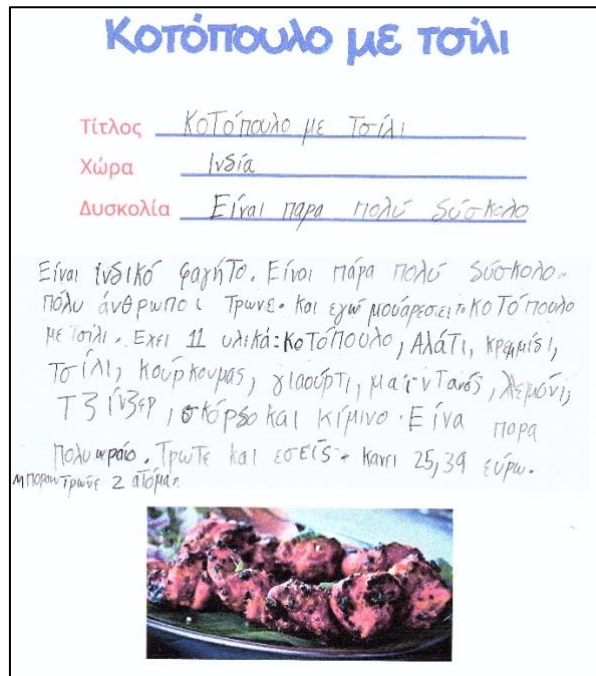 Κοτόπουλο με τσίλι
Τίτλος Κοτόπουλο με Τσίλι
Χώρα Ινδία
Δυσκολία Είναι παρα πολύ δύσκολο
Είναι ινδικό φαγήτο. Είναι πάρα πολύ δύσκολο.
πόλυ άνθρωποι τρωνε. Και εγώ μουάρεσει το κοτόπουλο
με τσίλι. Εχει 11 υλικά: κοτόπουλο, Αλάτι, κρεμμίδι,
Τσίλι, κούρκουμας, γιαούρτι, μαϊντανός, λεμόνι,
Τζίνζερ, σκόρδο και κίμινο. Είνα παρα
πολυ ωραιο. Τρωτε και εσείς. κανει 25,39 εύρω.
Μπορουν τρωνε 2 ατόμα.